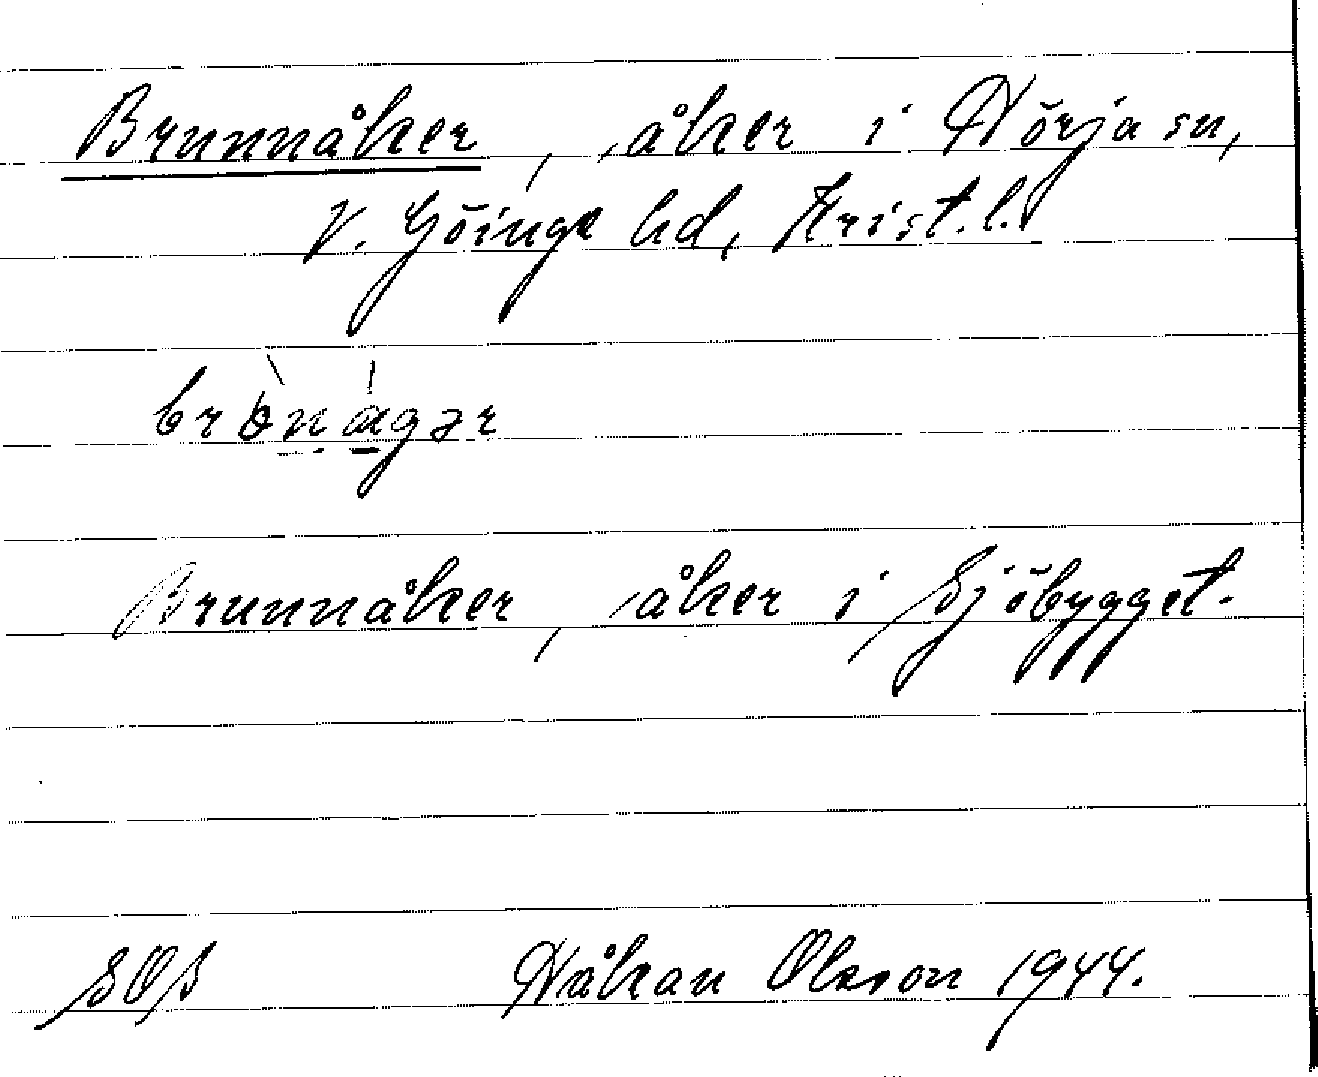 Brunnåker, åker i Hörja sn,
V. Göinge hd, Krist. l.
Brunnåker, åker i Sjöbygget.
Håkan Olsson 1944.